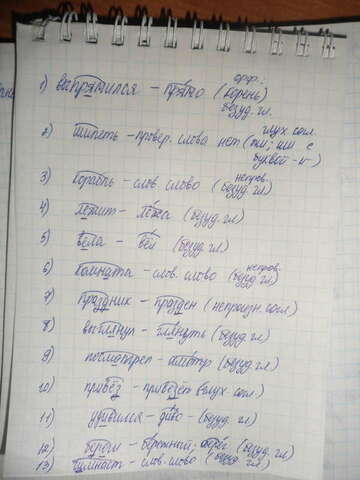 орф.:
1) выпрямился – прямо (корень)
безуд. гл.
глух. согл.
2) шипеть – провер. слова нет (жи; ши с
буквой -и-)
непров.
3) корабль – слов. слово (безуд. гл)
4) лежит – лёжа (безуд. гл)
5) вела – вёл (безуд. гл)
непров.
6) комната – слов. слово (безуд. гл)
7) праздник – празден (непроизн. согл)
8) выглянул – глянуть (безуд. гл)
9) посмотрел – смотр (безуд. гл)
10) привёз – привезёт (глух. согл.)
11) удивился – диво – (безуд. гл)
12) береги – бережный, берёг (безуд. гл)
13) – слов. слово (безуд. гл)